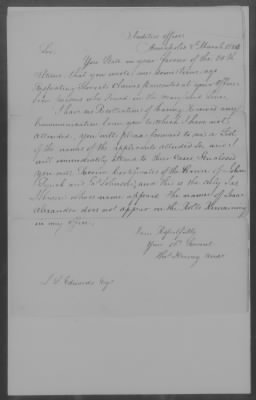 Auditors office
Annapolis 2d March
Sir,
You State in your favour of the 28th
that you wrote me sometime ago
respecting Several Claims Presented at your Office
for
I have no Recollection of having Received any
Communication from you to which I have not
attended, you will please forward to me a List
of the names of the applicants alluded to, and I
will immediately attend to their Cases. Enclosed
you will Receive Certificates of the Service of John
Lynch and and this is the only
whose name appears. The names of Isaac
Alexander does not appear on the Rolls Remaining
in my office.
Very Respectfully
Your Obt. Servant
Tho. Karney Audr
J L Edwards Esqr